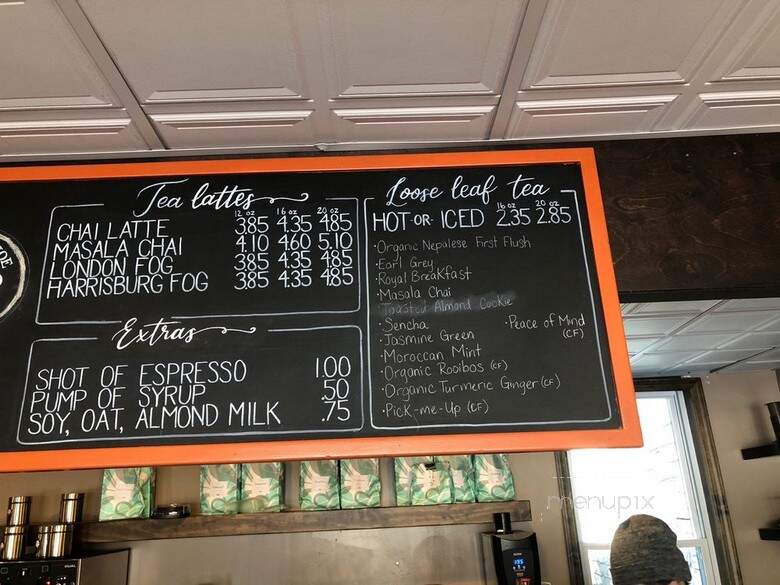 Tea lattes
12 oz 16 oz 20 oz
CHAI LATTE 3.85 4.35 4.85
MASALA CHAI 4.10 4.60 5.10
LONDON FOG 3.85 4.35 4.85
HARRISBURG FOG 3.85 4.35 4.85
Extras
SHOT OF ESPRESSO 1.00
PUMP OF SYRUP .50
SOY, OAT, ALMOND MILK .75
Loose leaf tea
16 oz 20 oz
HOT -OR- ICED 2.35 2.85
·Organic Nepalese First Flush
·Earl Grey
·Royal Breakfast
·Masala Chai
·Toasted Almond Cookie
·Sencha
·Jasmine Green
·Moroccan Mint
·Organic Rooibos (CF)
·Organic Turmeric Ginger (CF)
·Pick-me-Up (CF)
·Peace of Mind
(CF)
menupix
195